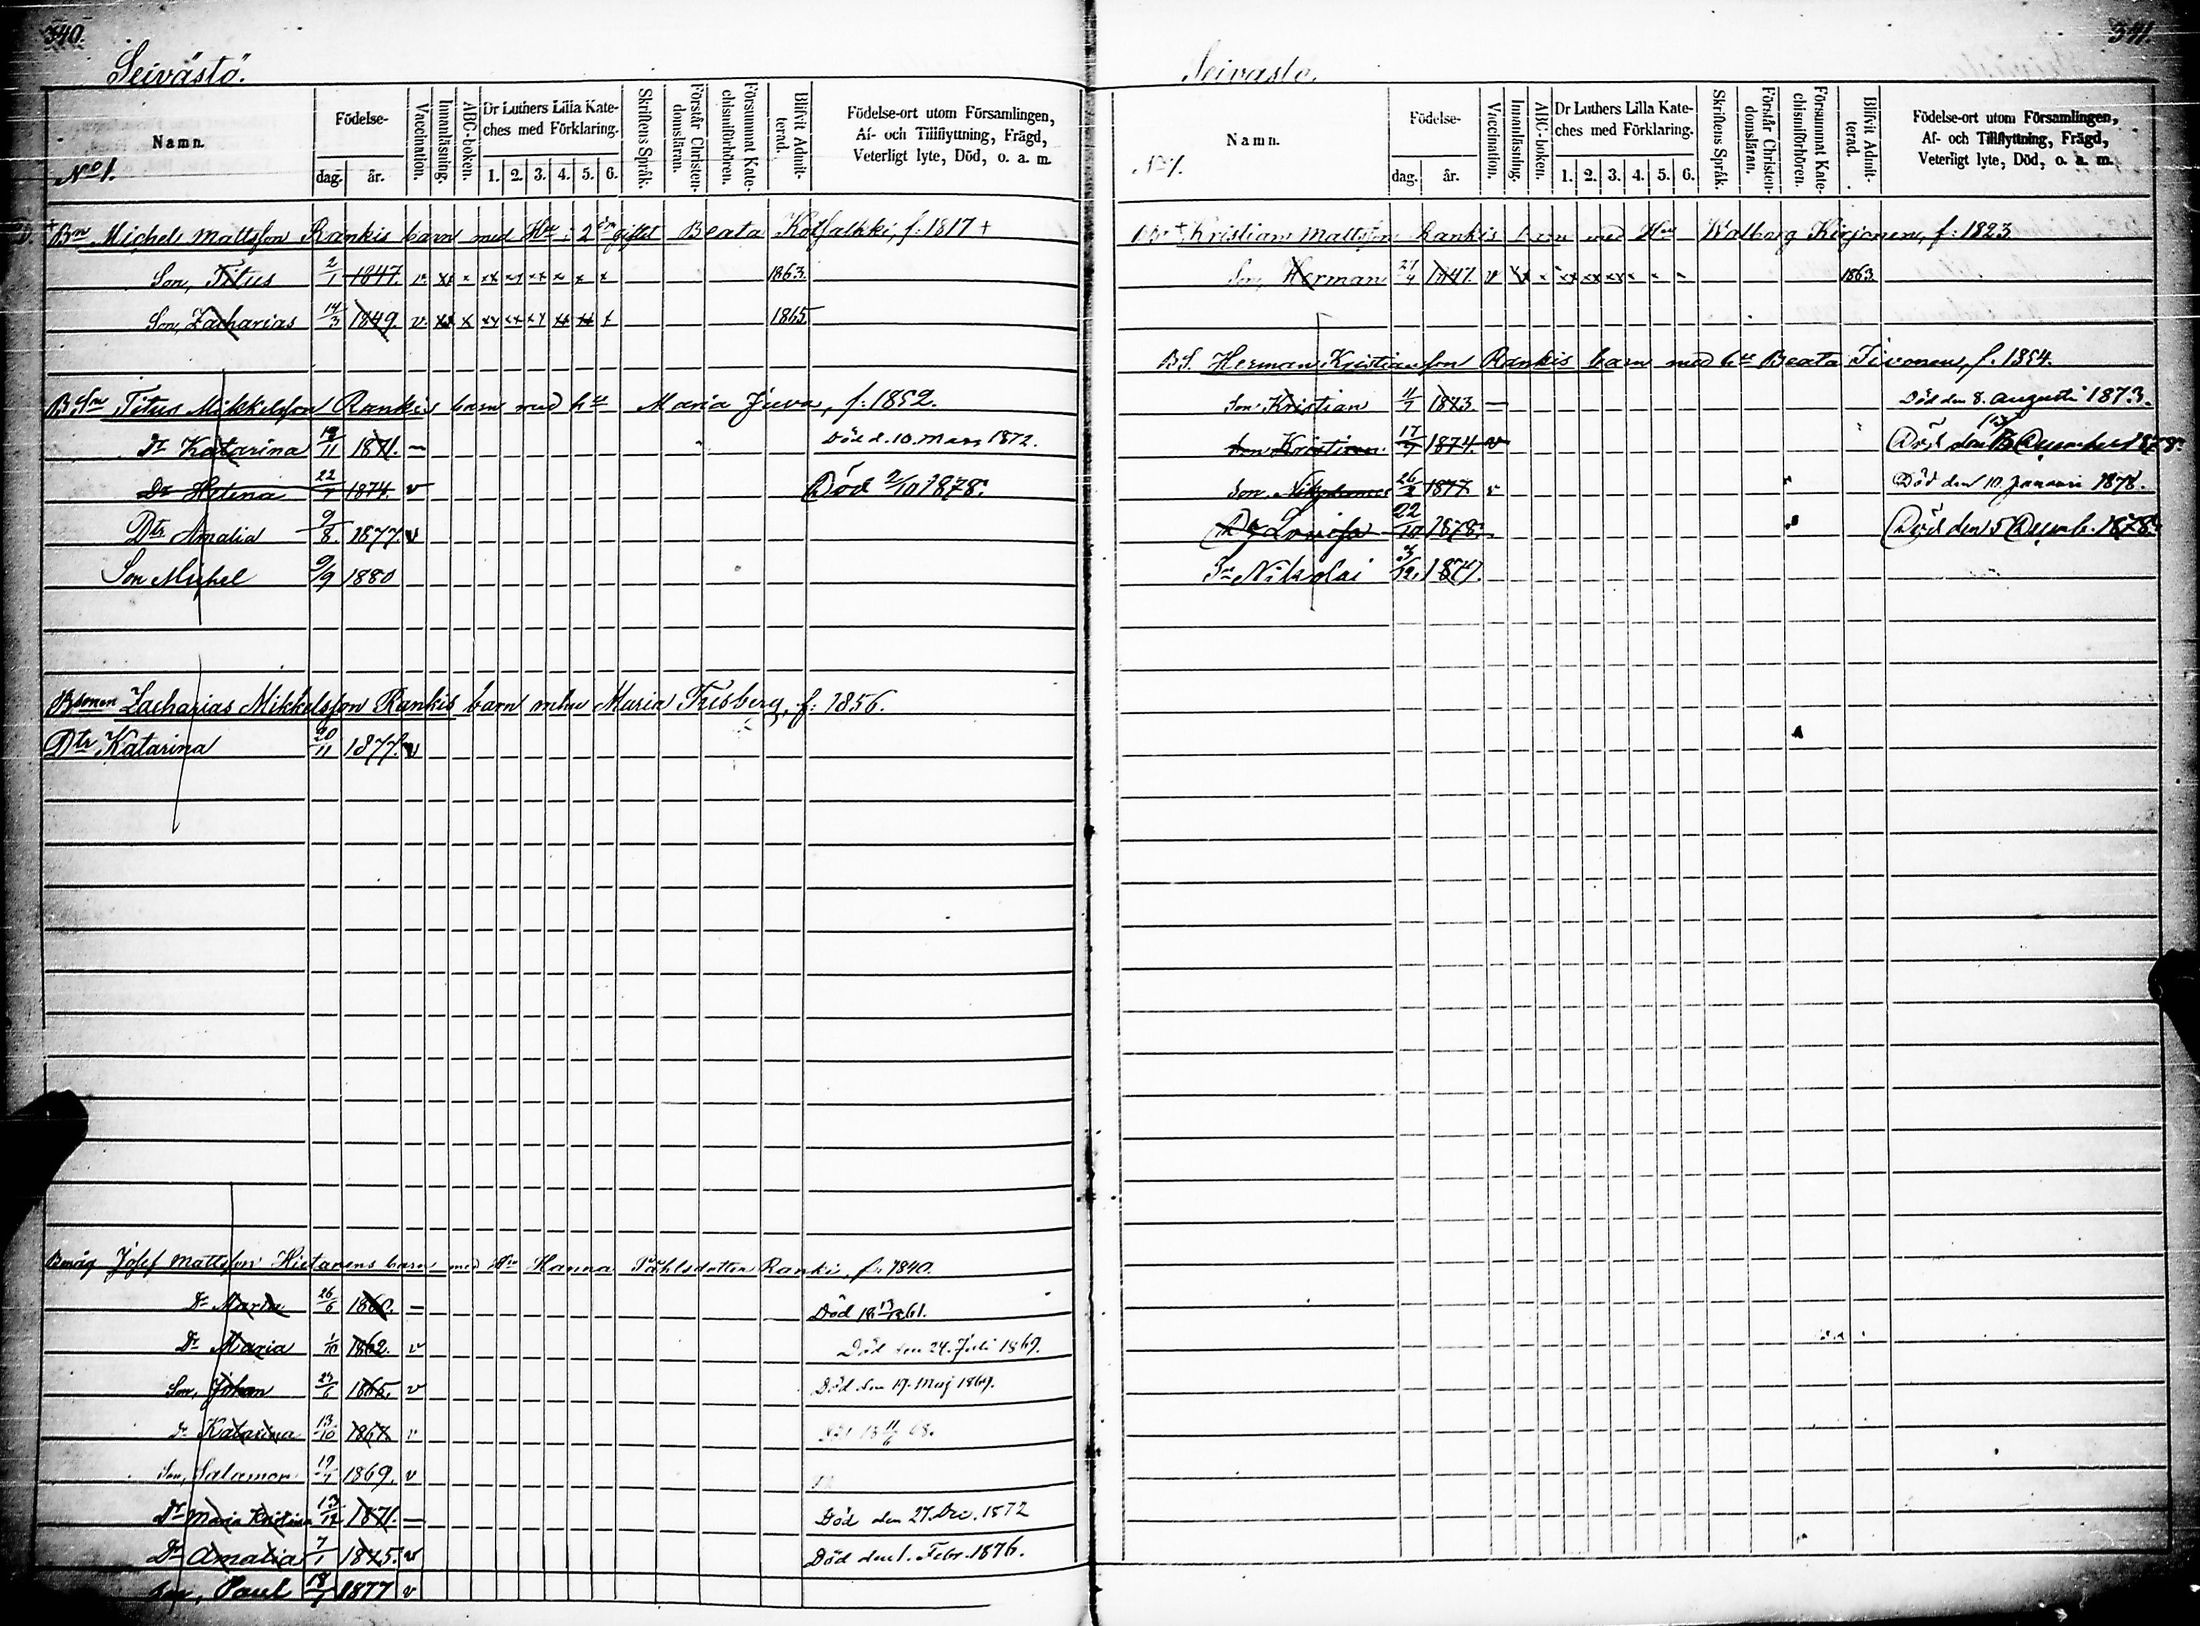 340.
Seivästö.
Namn.
No 1.
Födelse-
dag. år.
Vaccination.
Innanläsning.
ABC-boken.
Dr Luthers Lilla Kate-
ches med Förklaring.
1. 2. 3. 4. 5. 6.
Skriftens Språk.
Förstår Christen-
domsläran.
Försummat Kate-
chismiförhören.
Blifvit Admit-
terad.
Födelse-ort utom Församlingen,
Af- och Tillflyttning, Frägd,
Veterligt lyte, Död, o. a. m.
Bn Michel Mattsson Rankis barn med Hu i 2 giftet Beata Kolsalkki, f. 1817 +
Son, Titus 2/1 1847. v. xx x xx xx xx x x x 1863.
Son, Zacharias 14/3 1849. v. xx x xx xx xx xx xx x 1865.
B Sn Titus Mikkelsson Rankis barn med hu Maria Juva, f. 1852.
Dr Katarina 18/11 1871. — Död d. 10. Mars 1872.
Dr Helena 22/7 1874. v Död 2/10 1878.
Dtr Amalia 9/8. 1877. v
Son Mickel 9/9 1880
Bsonen Zacharias Mikkelsson Rankis barn m hu Maria Frisberg, f. 1856.
Dtr Katarina 20/11 1877. v
Bmåg Josef Mattsson Hietanens barn med Hu Hanna Påhlsdotter Ranki, f. 1840.
Dr Maria 26/6 1860. — Död 18 13/12 61.
Dr Maria 1/10 1862. v Död den 24. Juli 1869.
Son, Johan 23/6 1865. v Död den 19. Maj 1869.
Dr Katarina 13/10 1867. v Död 18 11/6 68.
Son, Salamon 19/7 1869. v
Dr Maria Kristina 13/12 1871. — Död den 27. Dec. 1872
Dr Amalia 7/1 1875. v Död den 1. Febr. 1876.
Son, Paul 18/7 1877 v
341.
Seivästö.
Namn.
No 1.
Födelse-
dag. år.
Vaccination.
Innanläsning.
ABC-boken.
Dr Luthers Lilla Kate-
ches med Förklaring.
1. 2. 3. 4. 5. 6.
Skriftens Språk.
Förstår Christen-
domsläran.
Försummat Kate-
chismiförhören.
Blifvit Admit-
terad.
Födelse-ort utom Församlingen,
Af- och Tillflyttning, Frägd,
Veterligt lyte, Död, o. a. m.
+ Kristian Mattsson Rankis barn med Hu Walborg Kirjonen, f. 1823.
Son, Herman 27/4 1847. v 1863.
B S. Herman Kristiansson Rankis barn med hu Beata Tivonen, f. 1854.
Son Kristian 11/7 1873. — Död den 8. augusti 1873.
Son Kristian 17/7 1874. v Död den 13 December 1878.
Son 26/2 1877. v Död den 10. Januari 1878.
Dr Lovisa 22/10 1878. Död den 5 Decemb. 1878.
Sn Nikolai 3/12. 1879.